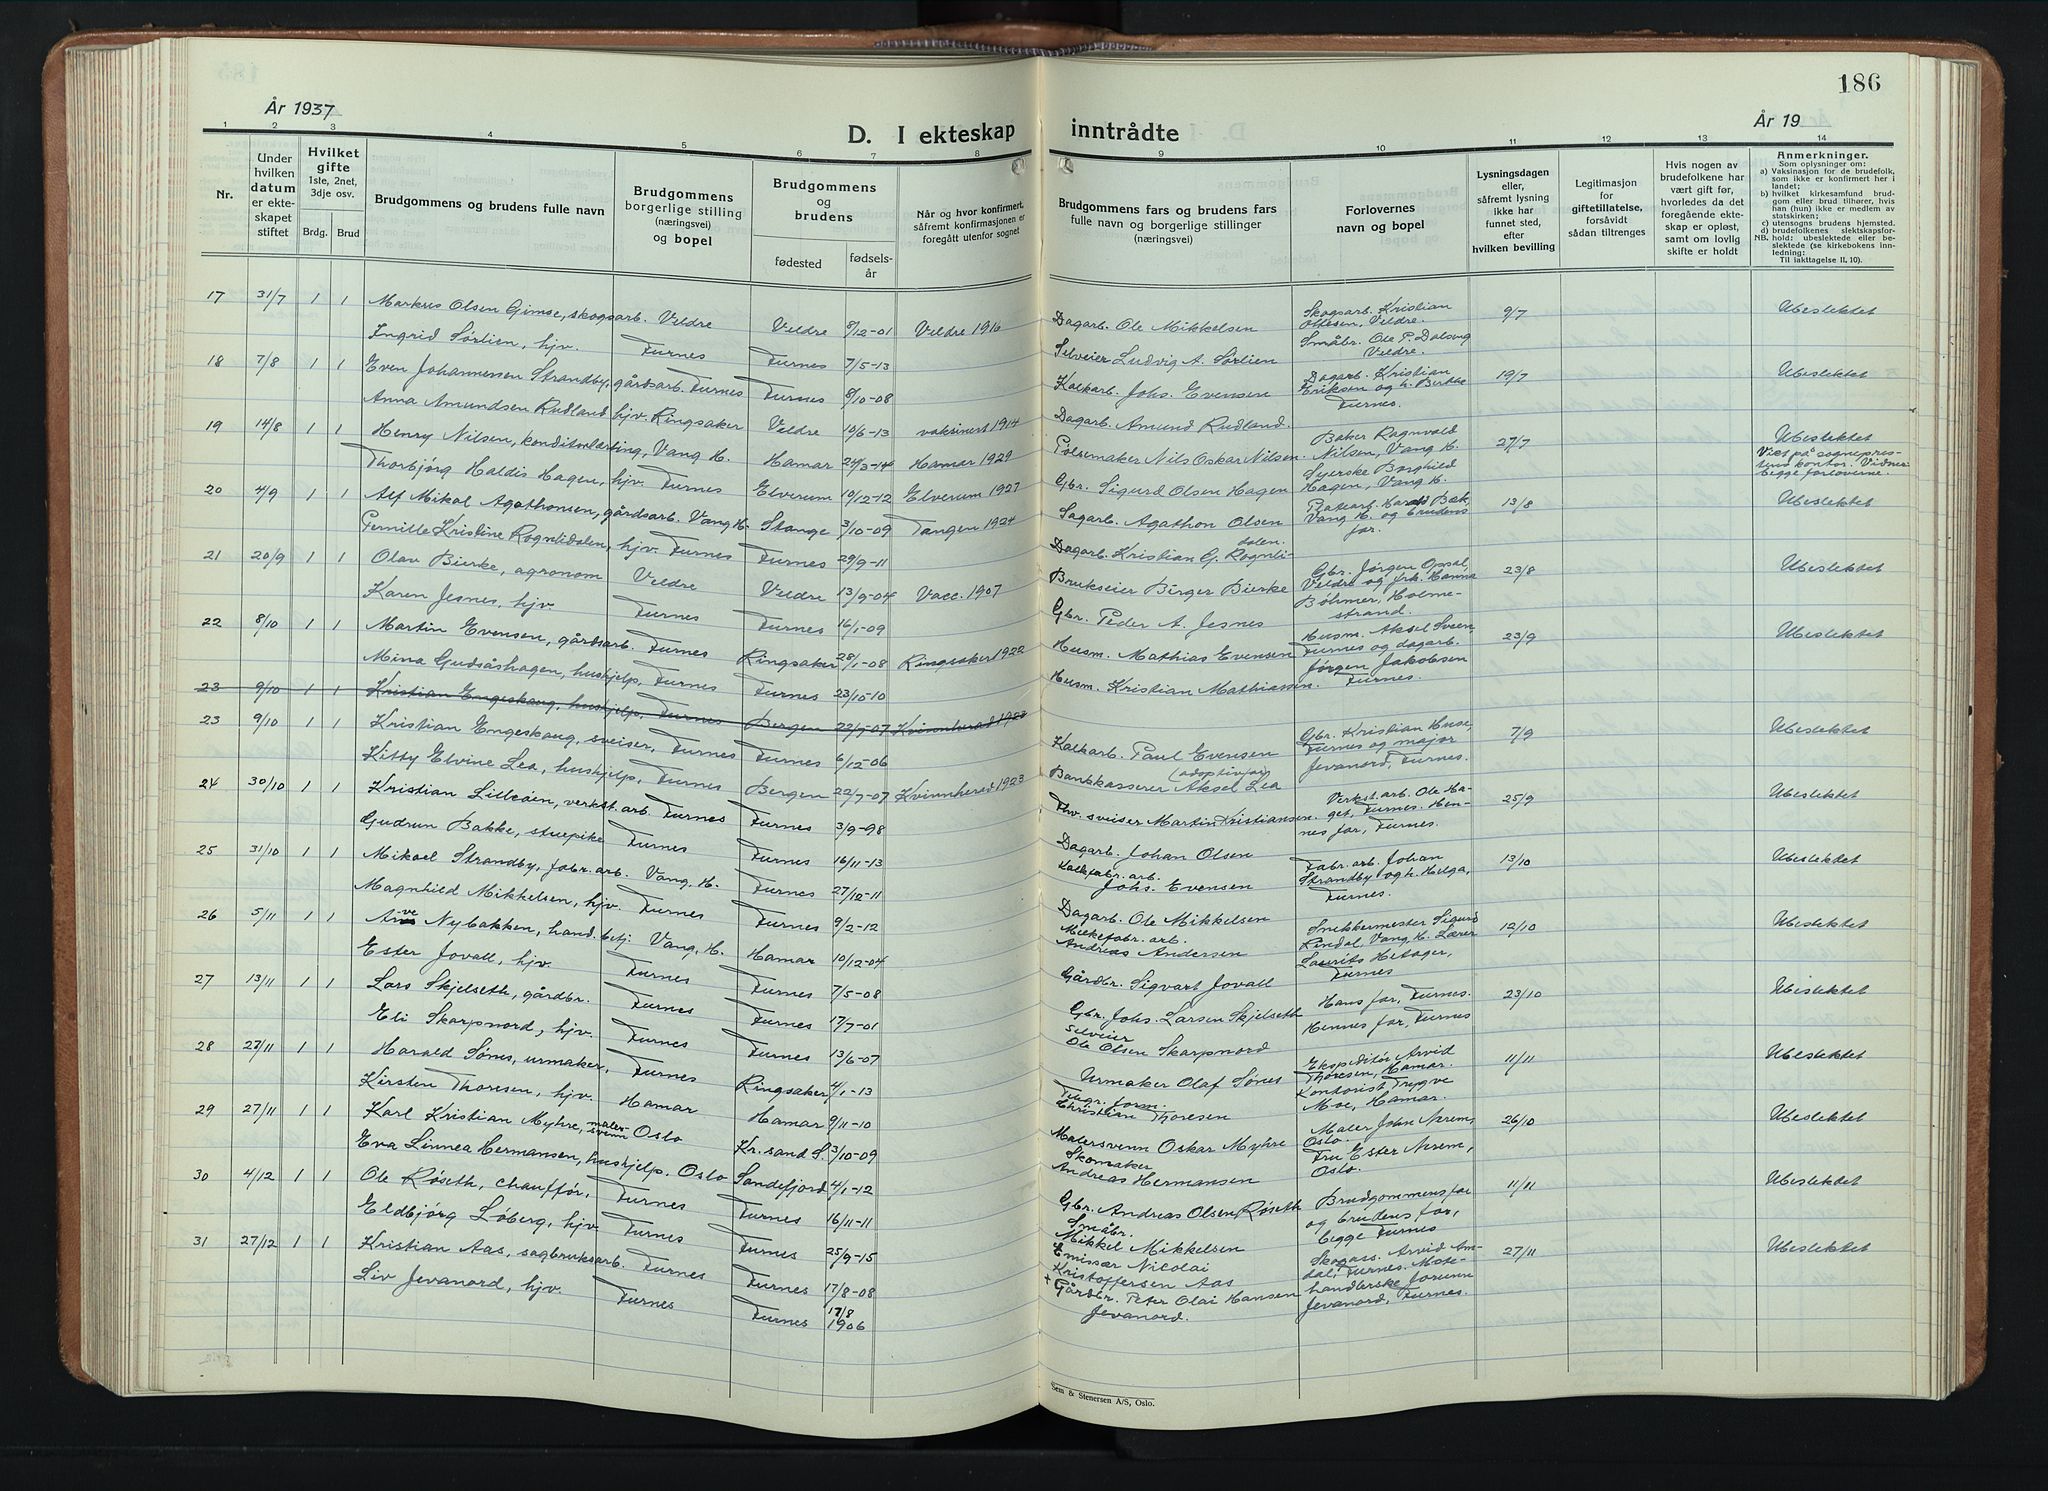 186
År 1937
D. I ekteskap inntrådte
År 19
1 2 3 4 5 6 7 8 9 10 11 12 13 14
Nr.
Under hvilken datum er ekteskapet stiftet
Hvilket gifte 1ste, 2net, 3dje osv.
Brdg. Brud
Brudgommens og brudens fulle navn
Brudgommens borgerlige stilling (næringsvei) og bopel
Brudgommens og brudens
fødested
fødselsår
Når og hvor konfirmert, såfremt konfirmasjonen er foregått utenfor sognet
Brudgommens fars og brudens fars fulle navn og borgerlige stillinger (næringsvei)
Forlovernes navn og bopel
Lysningsdagen eller, såfremt lysning ikke har funnet sted, efter hvilken bevilling
Legitimasjon for giftetillatelse, forsåvidt sådan tiltrenges
Hvis nogen av brudefolkene har vært gift før, hvorledes da det foregående ekteskap er opløst, samt om lovlig skifte er holdt
Anmerkninger.
Som oplysninger om:
a) Vaksinasjon for de brudefolk, som ikke er konfirmert her i landet;
b) hvilket kirkesamfund brudgom eller brud tilhører, hvis han (hun) ikke er medlem av statskirken;
c) utensogns brudens hjemsted.
d) brudefolkenes slektskapsforhold: ubeslektede eller beslektede (se kirkebokens innledning:
NB. Til iakttagelse II, 10).
17 31/7 1 1 Markus Olsen Gimse, skogsarb. Veldre Veldre 8/12-01 Veldre 1916 Dagarb. Ole Mikkelsen Skogsarb. Kristian Ottesen, Veldre. 9/7 Ubeslektet
Ingrid Sørlien, hjv. Furnes Furnes 7/5-13 Selveier Ludvig A. Sørlien Småbr. Ole P. Dalseng Veldre.
18 7/8 1 1 Even Johannessen Strandby, gårdsarb. Furnes Furnes 8/10-08 Kalkarb. Johs. Evensen Dagarb. Kristian Eriksen og h. Birthe Furnes. 19/7 Ubeslektet
Anna Amundsen Rudland, hjv. Ringsaker Veldre 10/6-13 vaksinert 1914 Dagarb. Amund Rudland.
19 14/8 1 1 Henry Nilsen, konditorlærling, Vang H. Hamar 29/3-14 Hamar 1929 Pølsemaker Nils Oskar Nilsen Baker Ragnvald Nilsen, Vang H. 27/7 Ubeslektet
Viet på sogneprestens kontor. Vidner begge forloverne.
Thorbjørg Haldis Hagen, hjv. Furnes Elverum 10/12-12 Elverum 1927 Gbr. Sigurd Olsen Hagen Syerske Borghild Hagen, Vang H.
20 4/9 1 1 Alf Mikal Agathonsen, gårdsarb. Vang H. Stange 3/10-09 Tangen 1924 Sagarb. Agathon Olsen Vang H. og brudens far. 13/8 Ubeslektet
Pernille Kristine Rognlidalen, hjv. Furnes Furnes 29/9-11 Dagarb. Kristian G. Rognlidalen.
21 20/9 1 1 Olav Bierke, agronom Veldre Veldre 13/9-04 Vacc. 1907 Brukseier Birger Bierke Gbr. Jørgen Opsal, Veldre og frk. Hanna 23/8 Ubeslektet
Karen Jesnes, hjv. Furnes Furnes 16/1-09 Gbr. Peder A. Jesnes Bøhmer, Holmestrand.
22 8/10 1 1 Martin Evensen, gårdsarb. Furnes Ringsaker 28/1-08 Ringsaker 1922 Husm. Mathias Evensen Husm. Aksel Sveen, Furnes og dagarb. 23/9 Ubeslektet
Mina Gudsåshagen, hushjelp, Furnes Furnes 23/10-10 Husm. Kristian Mathiassen. Jørgen Jakobsen Furnes.
23 9/10 1 1 Kristian Engeskaug, hushjelp, Furnes Bergen 22/7-07 Kvinnherad 1923
23 9/10 1 1 Kristian Engeskaug, sveiser, Furnes Furnes 6/12-06 Kalkarb. Paul Evensen Gbr. Kristian Huse, Furnes og major 7/9 Ubeslektet
Kitty Elvine Lea, hushjelp, Furnes Bergen 22/7-07 Kvinnherad 1923 Bankkasserer Aksel Lea (adoptivfar) Jevanord, Furnes.
24 30/10 1 1 Kristian Lilleåen, verkst. arb. Furnes Furnes 3/9-98 Fhv. sveiser Martin Kristiansen. Verkst. arb. Ole Haget, Furnes. Hennes far, Furnes. 25/9 Ubeslektet
Gudrun Bakke, stuepike Furnes Furnes 16/11-13 Dagarb. Johan Olsen
25 31/10 1 1 Mikael Strandby, fabr. arb. Vang, H. Furnes 27/12-11 Kalkfabr. arb. Johs. Evensen Fabr. arb. Johan Strandby og h. Helga, Furnes. 13/10 Ubeslektet
Magnhild Mikkelsen, hjv. Furnes Furnes 9/2-12 Dagarb. Ole Mikkelsen
26 5/11 1 1 Arve Nybakken, hand. betj. Vang, H. Hamar 10/12-04 Melkefabr. arb. Andreas Andersen Snekkermester Sigurd Lindal, Vang, H. Lærer 12/10 Ubeslektet
Ester Jovall, hjv. Furnes Furnes 7/5-08 Gårdbr. Sigvart Jovall Laurits Hetager, Furnes
27 13/11 1 1 Lars Skjelseth, gårdbr. Furnes Furnes 17/7-01 Gbr. Johs. Larsen Skjelseth Hans far, Furnes. 23/10 Ubeslektet
Eli Skarpnord, hjv. Furnes Furnes 13/6-07 Selveier Ole Olsen Skarpnord Hennes far, Furnes
28 27/11 1 1 Harald Sønes, urmaker, Furnes Ringsaker 4/1-13 Urmaker Olaf Sønes Ekspeditør Arvid Thoresen, Hamar. 11/11 Ubeslektet
Kirsten Thoresen, hjv. Hamar Hamar 9/11-10 Telegr. form. Christian Thoresen Kontorist Trygve Moe, Hamar.
29 27/11 1 1 Karl Kristian Myhre, malersvenn Oslo Kr. sand S. 3/10-09 Malersvenn Oskar Myhre Maler John Nerem, Oslo. 26/10 Ubeslektet
Eva Linnea Hermansen, hushjelp. Oslo Sandefjord 4/1-12 Skomaker Andreas Hermansen Fru Ester Nerem, Oslo.
30 4/12 1 1 Ole Røseth, chauffør, Furnes Furnes 16/11-11 Gbr. Andreas Olsen Røseth Brudgommens far og brudens far, begge Furnes 11/11 Ubeslektet
Eldbjørg Løberg, hjv. Furnes Furnes 25/9-15 Småbr. Mikkel Mikkelsen
31 27/12 1 1 Kristian Aas, sagbruksarb. Furnes Furnes 17/8-08 Emissær Nicolai Kristoffersen Aas Skogass. Arvid Amdal, Furnes. Mote- 27/11 Ubeslektet
Liv Jevanord, hjv. Furnes Furnes 17/8 1906 + Gårdbr. Peter Olai Hansen Jevanord. handlerske Jorunn Jevanord, Furnes.
Sem & Stenersen A/S, Oslo.